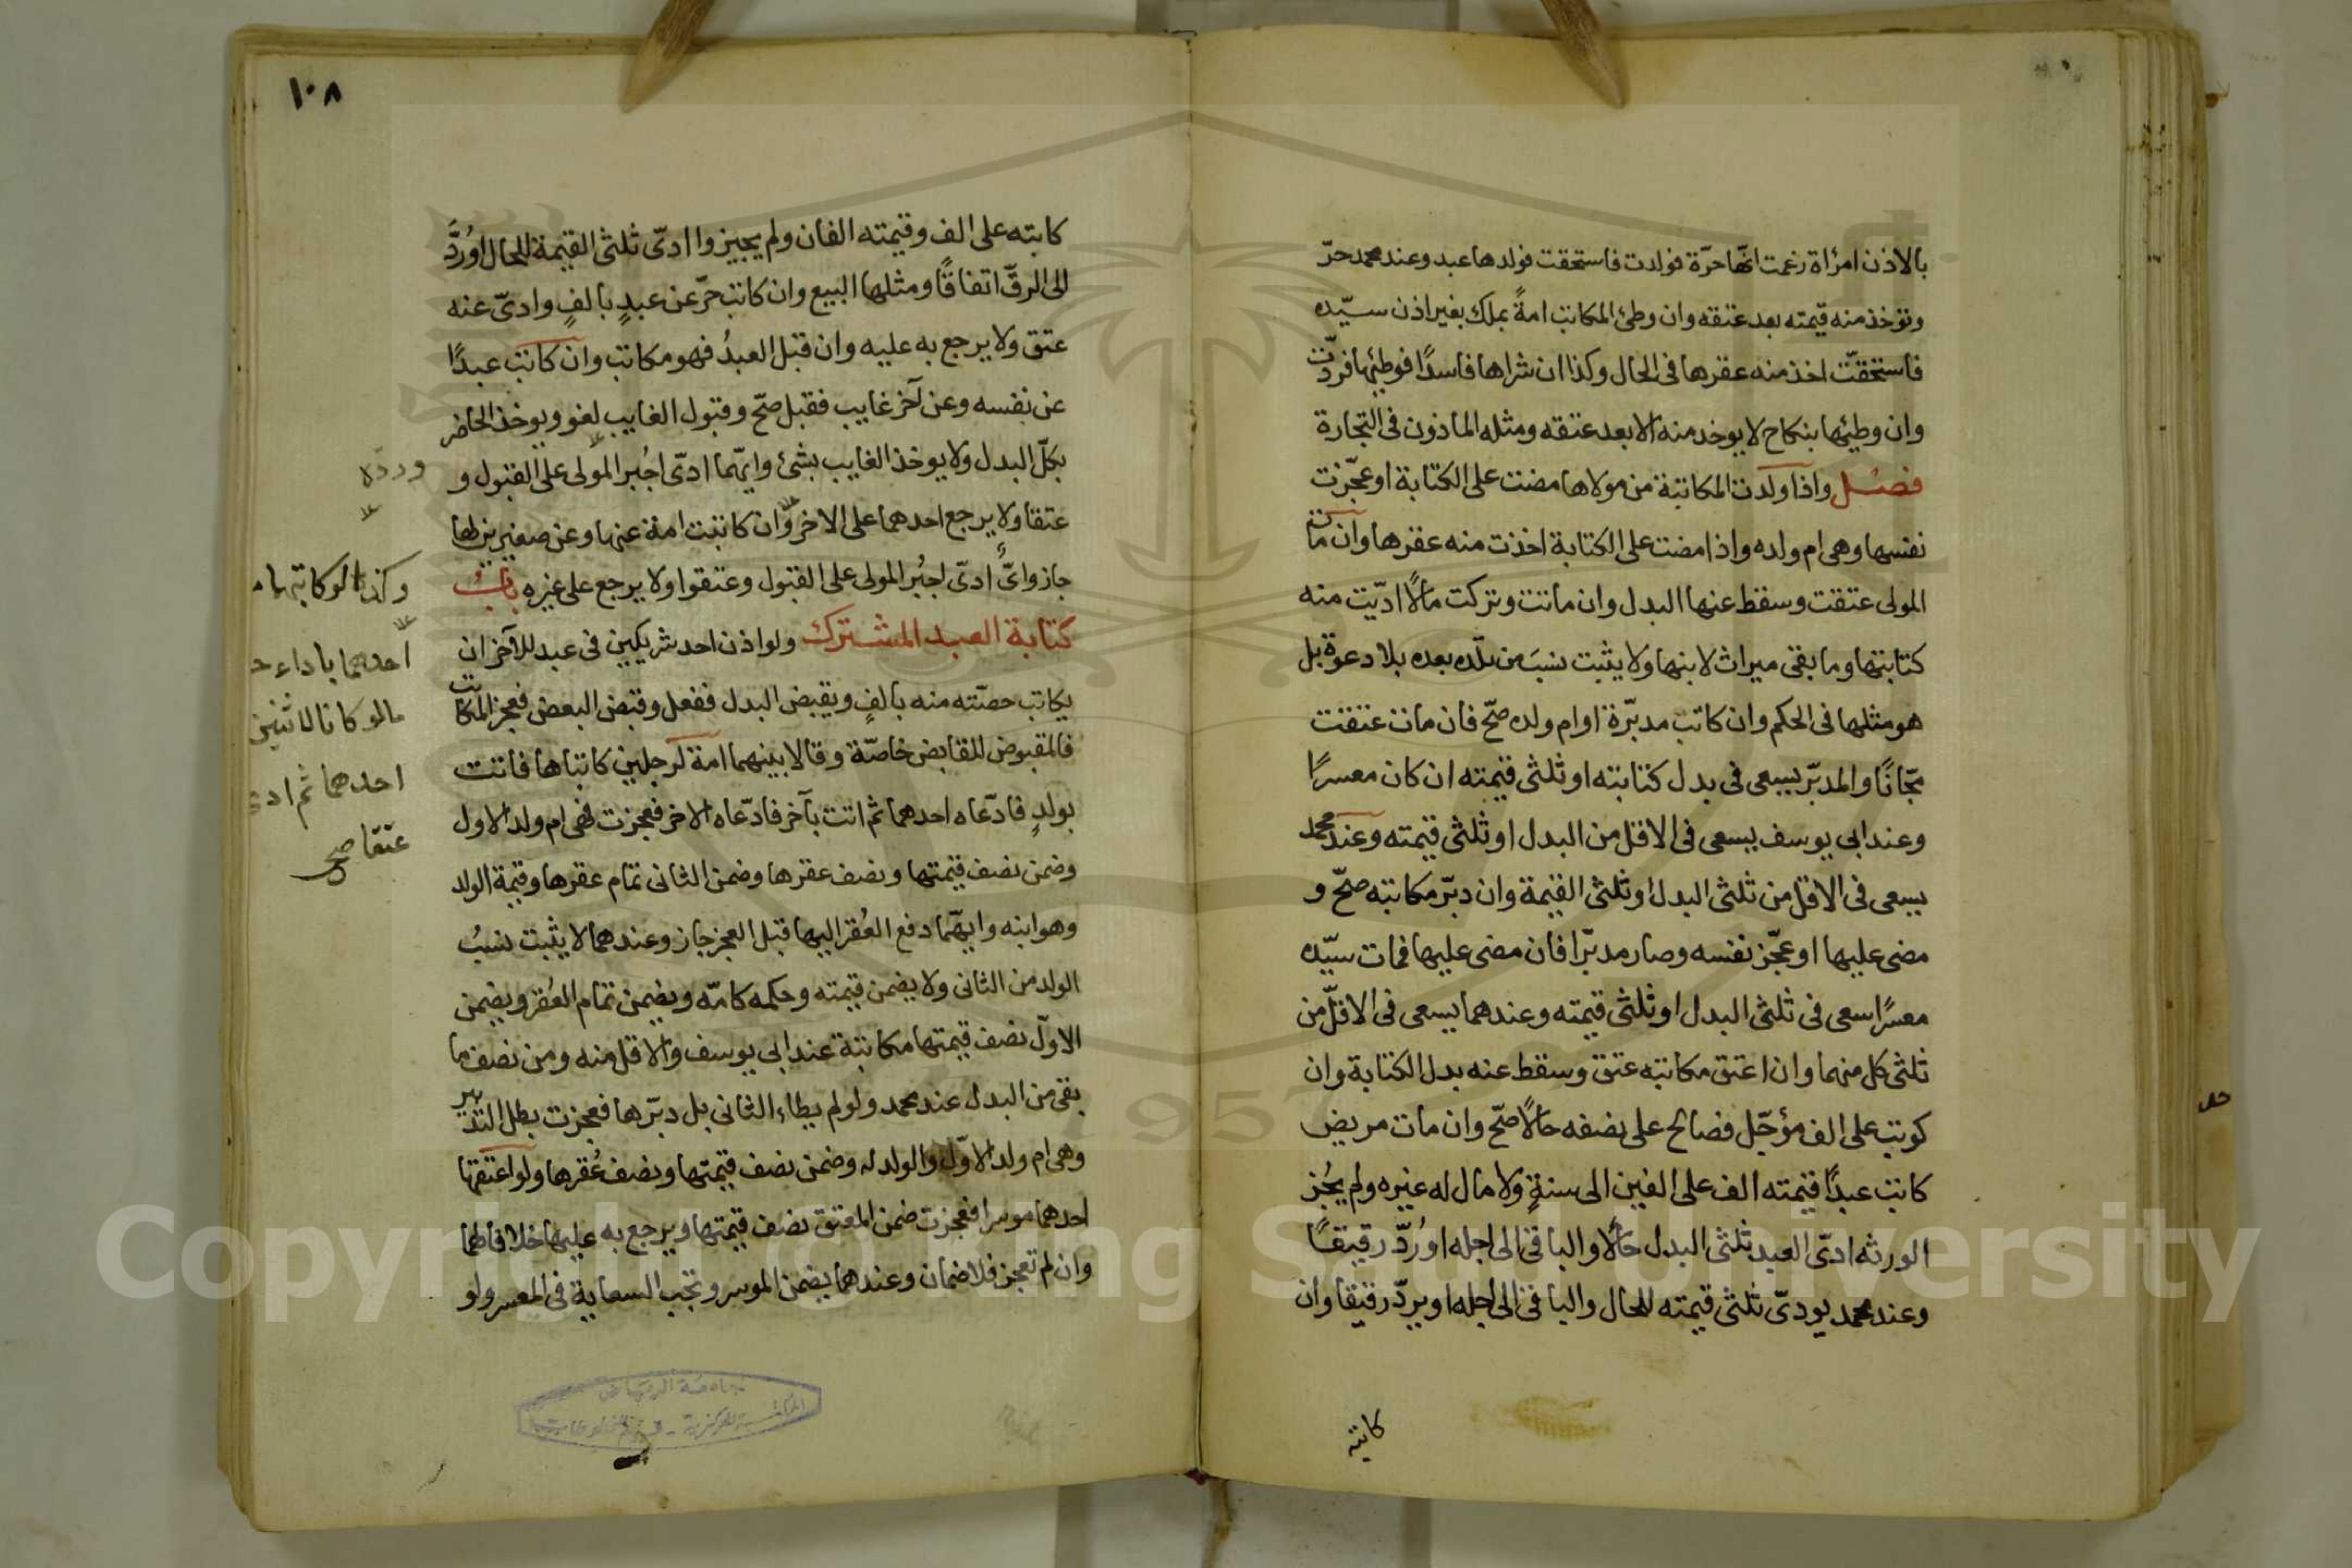 بالاذن امرأة زعمت انّها حرّة فولدت فاستحقت فولدها عبد وعند محمد حرّ
وتؤخذ منه قيمته بعد عتقه وان وطئ المكاتب امةً بملك بغير اذن سيّده
فاستحقّت اخذ منه عقرها فى الحال وكذا ان شراها فاسدًا فوطئها فردّت
وان وطئها بنكاح لا يوخذ منه الا بعد عتقه ومثله الماذون فى التجارة
فصل واذا ولدت المكاتبة من مولاها مضت على الكتابة او عجّزت
نفسها وهى ام ولده واذا مضت على الكتابة اخذت منه عقرها وان مات
المولى عتقت وسقط عنها البدل وان ماتت وتركت مالًا ادّيت منه
كتابتها وما بقى ميراث لابنها ولا يثبت نسب من تلّده بعده بلا دعوة بل
هو مثلها فى الحكم وان كاتب مدبّرة او ام ولده صحّ فان مات عتقت
مجّانًا والمدبّر يسعى فى بدل كتابته او ثلثى قيمته ان كان معسرًا
وعند ابى يوسف يسعى فى الاقل من البدل او ثلثى قيمته وعند محمد
يسعى فى الاقل من ثلثى البدل او ثلثى القيمة وان دبّر مكاتبه صحّ و
مضى عليها او عجّز نفسه وصار مدبّرا فان مضى عليها فمات سيّده
معسرًا سعى فى ثلثى البدل او ثلثى قيمته وعندهما يسعى فى الاقلّ من
ثلثى كل منهما وان اعتق مكاتبه عتق وسقط عنه بدل الكتابة وان
كوتب على الف مؤجّل فصالح على نصفه حالًا صحّ وان مات مريض
كاتب عبدًا قيمته الف على الفين الى سنةٍ ولا مال له غيره ولم يُجز
الورثه ادّى العبد ثلثى البدل حالًا والباقى الى اجله او رُدّ رقيقًا
وعند محمد يودىّ ثلثى قيمته للحال والباقى الى اجله او يردّ رقيقا وان
كاتبه
١٠٨
كاتبه على الف وقيمته الفان ولم يجيزوا ادىّ ثلثى القيمة للحال او رُدَّ
الى الرقّ اتفاقًا ومثلها البيع وان كاتب حرّ عن عبدٍ بالفٍ وادىّ عنه
عتق ولا يرجع به عليه وان قبل العبدُ فهو مكاتب وان كاتب عبدًا
عن نفسه وعن آخر غايب فقبل صحّ وقبول الغايب لغو ويوخذ الحاضر
بكلّ البدل ولا يوخذ الغايب بشئ وايّهما ادّى اجُبر المولى على القبول و
عتقا ولا يرجع احدهما على الاخر وان كاتبت امة عنها وعن صغيرين لها
جاز وايٌّ ادّى اجبُر المولى على القبول وعتقوا ولا يرجع على غيره باب
كتابة العبد المشترك ولو اذن احد شريكين فى عبد للآخر ان
يكاتب حصّته منه بالفٍ ويقبض البدل ففعل وقبض البعض فعجز المكاتب
فالمقبوض للقابض خاصّة وقالا بينهما امة لرجلين كاتباها فاتت
بولدٍ فادّعاه احدهما ثم اتت بآخر فادّعاه الاخر فعجزت فهى ام ولد الاول
وضمن نصف قيمتها ونصف عقرها وضمن الثانى تمام عقرها وقيمة الولد
وهو ابنه وايّهما دفع العُقر اليها قبل العجز جاز وعندهما لا يثبت نسبُ
الولد من الثانى ولا يضمن قيمته وحكمه كامّه ويضمن تمام العُقر ويضمن
الاوّل نصف قيمتها مكاتبة عند ابى يوسف والاقل منه ومن نصف ما
بقى من البدل عند محمد ولو لم يطاء الثانى بل دبّرها فعجزت بطل التدبير
وهى ام ولد الاوّل والولد له وضمن نصف قيمتها ونصف عُقرها ولو اعتقها
احدهما موسرا فعجزت ضمن المعتق نصف قيمتها ويرجع به عليها خلافا لهما
وان لم تعجز فلا ضمان وعندهما يضمن الموسر وتجب السعاية فى المعسر ولو
وكذا لو كاتبهما
احدهما باداء
مالو كانا لاثنين
احدهما ثم ادى
عتقا صح
جامعة الرياض
Copyright © King Saud University